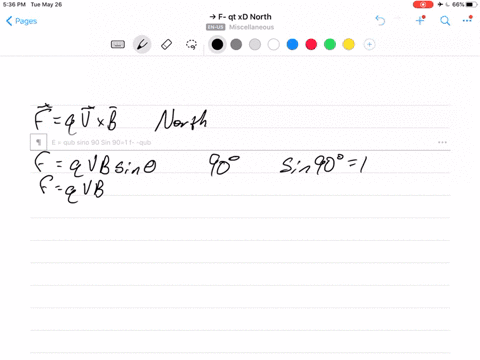 5:36 PM Tue May 26
66%
Pages
→ F- qt xD North
EN-US Miscellaneous
F⃗ = q V⃗ × B⃗ North
¶ E = qub sino 90.Sin 90=11- -qub
F = q V B sin θ 90° sin 90° = 1
F = q V B